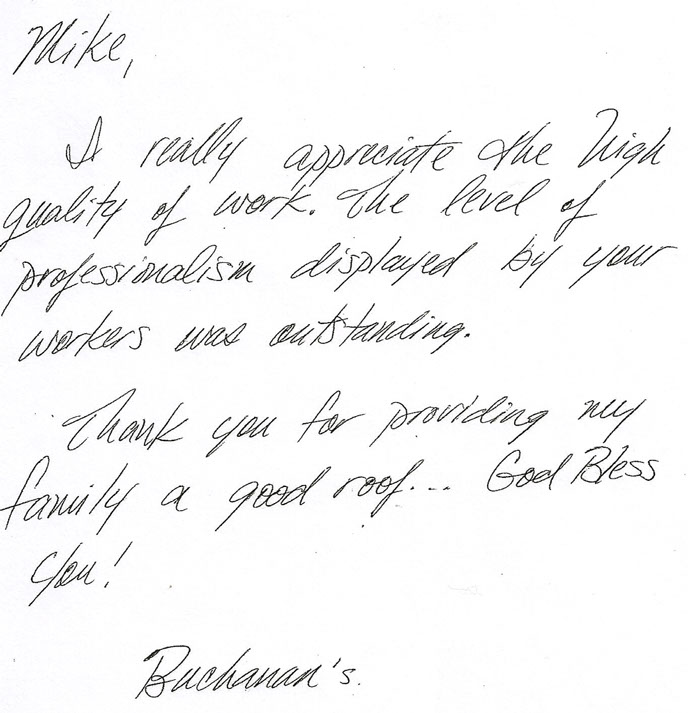 Mike,
I really appreciate the high
quality of work. The level of
professionalism displayed by your
workers was outstanding.
Thank you for providing my
family a good roof... God Bless
You!
Buchanan's.